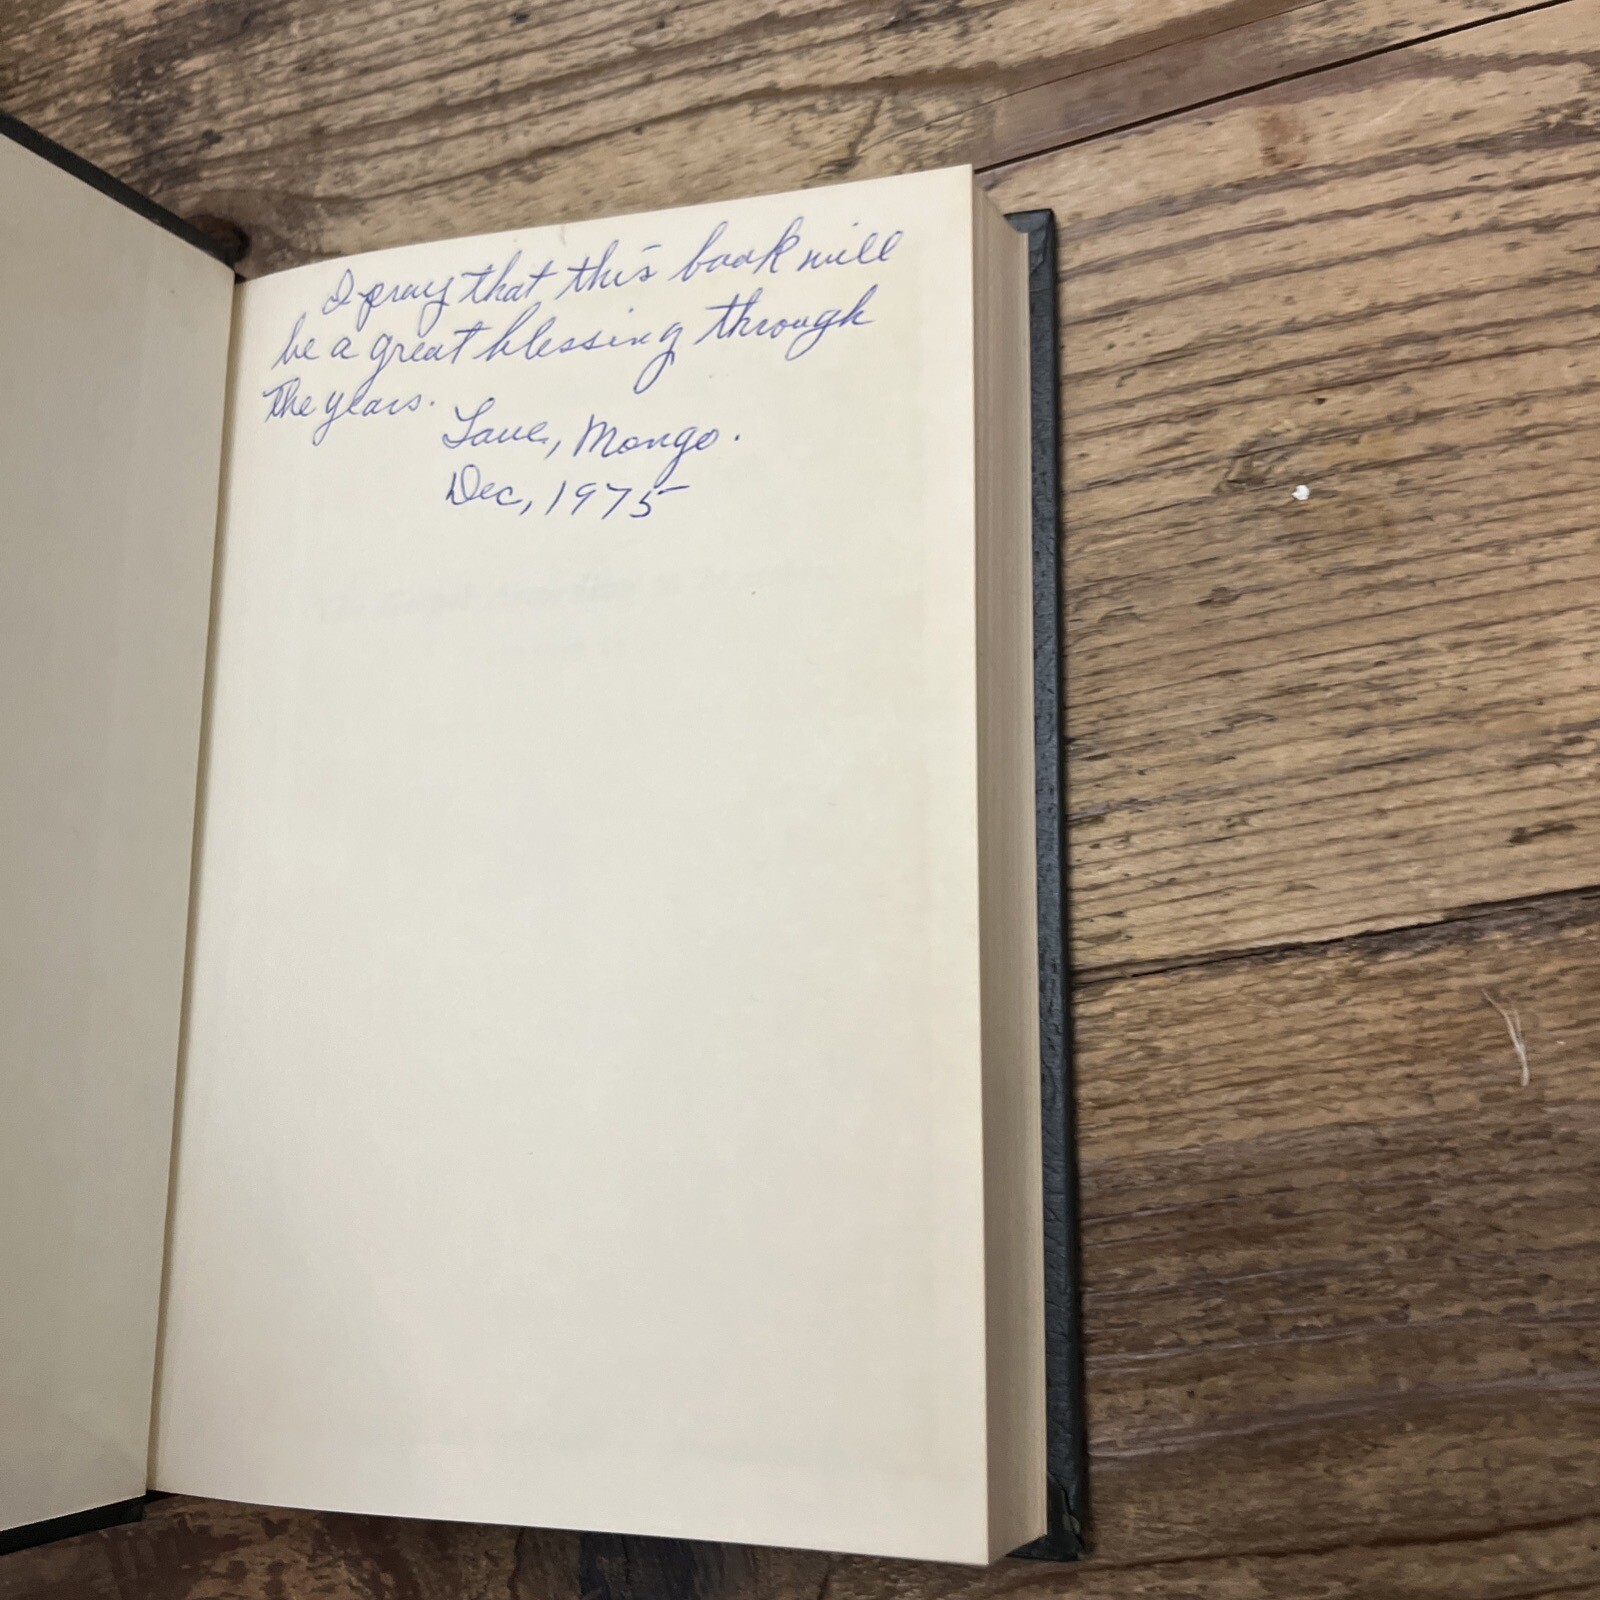 I pray that this book will
be a great blessing through
the years.
Love, Mongo.
Dec, 1975